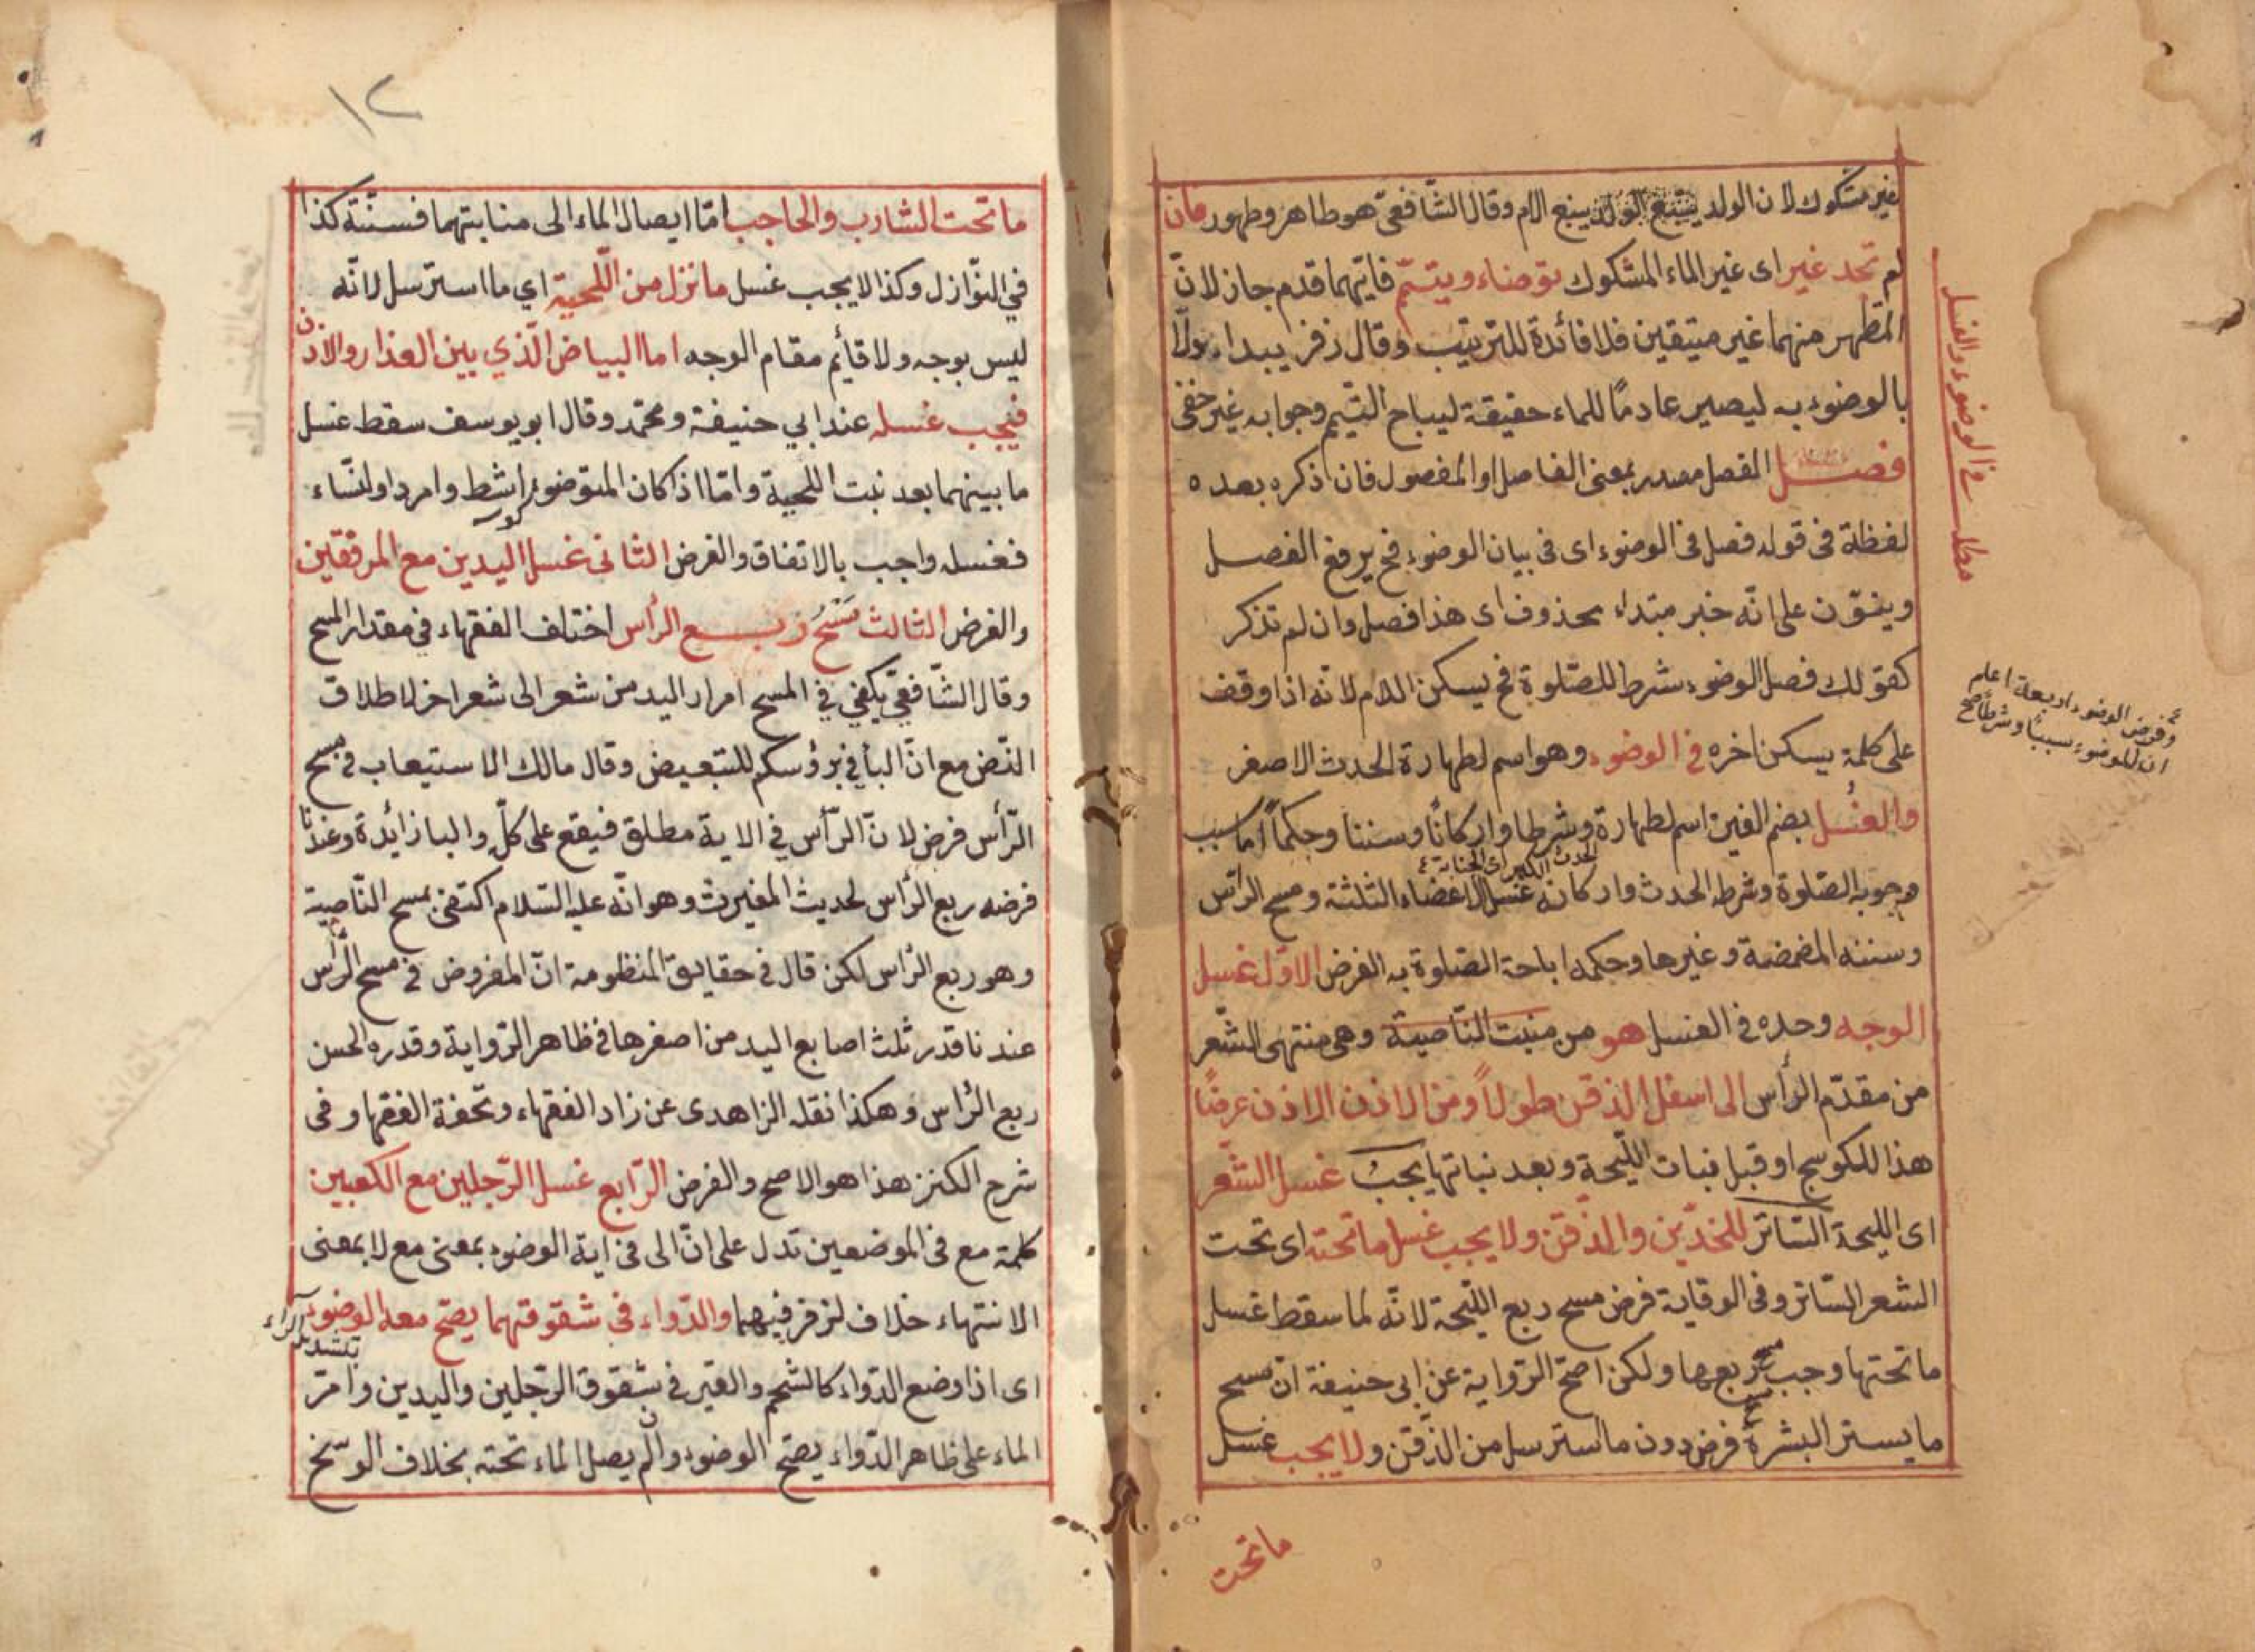 غير مشكوك لان الولد يتبع الام وقال الشافعىّ هو طاهر وطهور فان
لم تجد غير اى غير الماء المشكوك توضاء ويتيمّم فايّهما قدم جاز لانّ
المتطهر منهما غير متيقين فلا فائدة للترتيب وقال زفر يبداء اولاً
بالوضوء به ليصير عادمًا للماء حقيقة ليباح التيمم وجوابه غير خفى
فصل الفصل مصدر بمعنى الفاصل او المفصول فان ذكره بعده
لفظة فى قوله فصل فى الوضوء اى فى بيان الوضوء فح يرفع الفصل
وينوّن على انّه خبر مبتداء محذوف اى هذا فصل وان لم تذكر
كقولك فصل الوضوء شرط للصّلوة فح يسكن اللام لانّه اذا وقف
على كلمة يسكن اخره فى الوضوء وهو اسم لطهارة الحدث الاصغر
والغُسل بضم الغين اسم لطهارة وشرطا واركانًا وسننا وحكماً اما سبب
الحدث الكبير اى الجنابة
وجوبه الصّلوة وشرطه الحدث واركانه غسل الاعضاء الثلثة ومسح الرأس
وسننه المضمضة وغيرها وحكمه اباحة الصّلوة به الفرض الاوّل غسل
الوجه وحده فى الغسل هو من منبت النّاصية وهى منتهى الشّعر
من مقدّم الرأس الى اسفل الذقن طولاً ومن الاذن الى الاذن عرضًا
هذا للكوسج او قبل نبات اللّيحة وبعد نباتها يجب غسل الشّعر
اى الليحة السّاتر للخدّين والذّقن ولا يجب غسل ما تحته اى تحت
الشعر السّاتر وفى الوقاية فرض مسح ربع اللّيحة لانّه لما سقط غسل
ما تحتها وجب مسح ربعها ولكن اصحّ الرّواية عن ابى حنيفة انّ مسح
ما يستر البشرة فرض دون ما استرسل من الذّقن ولا يجب غسل
ما تحت
مطلب فى الوضوء والغسل
وفرض الوضوء اربعة اعلم
ان للوضوء سببا وشرطا صح
١٢
ما تحت الشارب والحاجب امّا ايصال الماء الى منابتهما فسنّة كذا
في النّوازل وكذا لا يجب غسل ما نزل من اللّحية اي ما استرسل لانّه
ليس بوجه ولا قائم مقام الوجه اما البياض الّذي بين العذار والاذن
فيجب غسله عند ابي حنيفة ومحمّد وقال ابو يوسف سقط غسل
ما بينهما بعد نبت اللحية وامّا اذا كان المتوضوء اشط وامرد او النّساء
كوسه
فغسله واجب بالاتفاق والفرض الثانى غسل اليدين مع المرفقين
والفرض الثالث مَسْحُ ربع الرأس اختلف الفقهاء في مقدار المسح
وقال الشّافعيّ يكفي في المسح امرار اليد من شعر الى شعر اخر لاطلاق
النّص مع انّ البأ في برؤسكم للتبعيض وقال مالك الاستيعاب فى مسح
الرّأس فرض لانّ الرّأس في الاية مطلق فيقع على كلّ والبا زائدة وعندنا
فرضه ربع الرّأس لحديث المغيرث وهو انّه عليه السّلام اكتفى بمسح النّاصية
وهو ربع الرّأس لكن قال فى حقايق المنظومة انّ المفروض فى مسح الرّأس
عندنا قدر ثلث اصابع اليد من اصغرها فى ظاهر الرّواية وقدره الحسن
ربع الرّأس وهكذا نقله الزاهدى عن زاد الفقهاء وتحفة الفقها وفى
شرح الكنز هذا هو الاصح والفرض الرّابع غسل الرّجلين مع الكعبين
كلمة مع فى الموضعين تدل على انّ الى فى اية الوضوء بمعنى مع لا بمعنى
الانتهاء خلاف لزفر فيهما والدّواء فى شقوقتهما يصحّ معه الوضوء
بتشديد الراء
اى اذا وضع الدّواء كالشحم والقير فى شقوق الرّجلين واليدين وامرّ
الماء على ظاهر الدّواء يصحّ الوضوء وان لم يصل الماء تحته بخلاف الوسخ